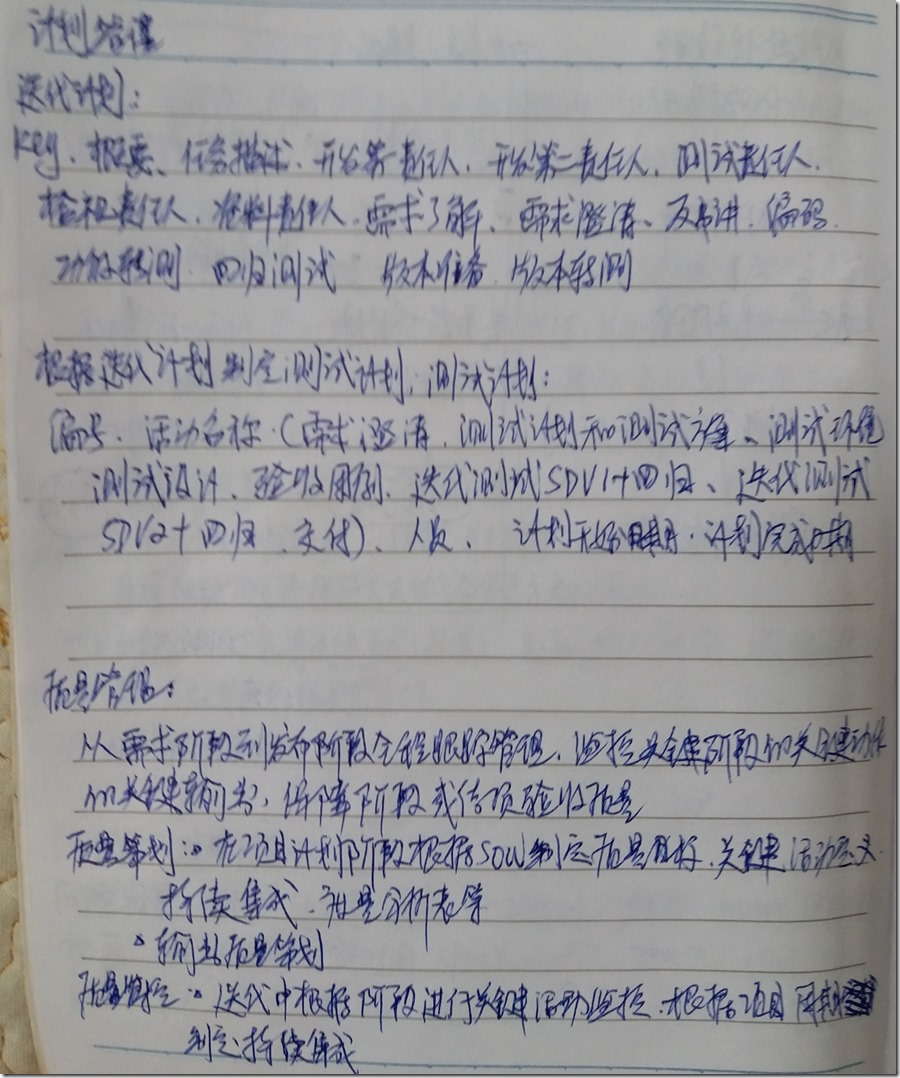 计划管理
迭代计划：
key、概要、任务描述、开发第一责任人、开发第二责任人、测试责任人、
检视责任人、资料责任人、需求了解、需求澄清、反串讲、编码、
功能转测、回归测试 版本准备、版本转测
根据迭代计划制定测试计划，测试计划：
编号、活动名称（需求澄清、测试计划和测试方案、测试环境
测试设计、验收用例、迭代测试SDV1+回归、迭代测试
SDV2+回归、交付）、人员、计划开始日期、计划完成日期
质量管理：
从需求阶段到发布阶段全程跟踪管理，监控关键阶段的关键动作
的关键输出，保障阶段或结项验收质量
质量策划：。在项目计划阶段根据SOW制定质量目标、关键活动定义
持续集成、质量分析表等
。输出质量策划
质量监控：。迭代中根据阶段进行关键活动监控、根据项目周期
制定持续集成